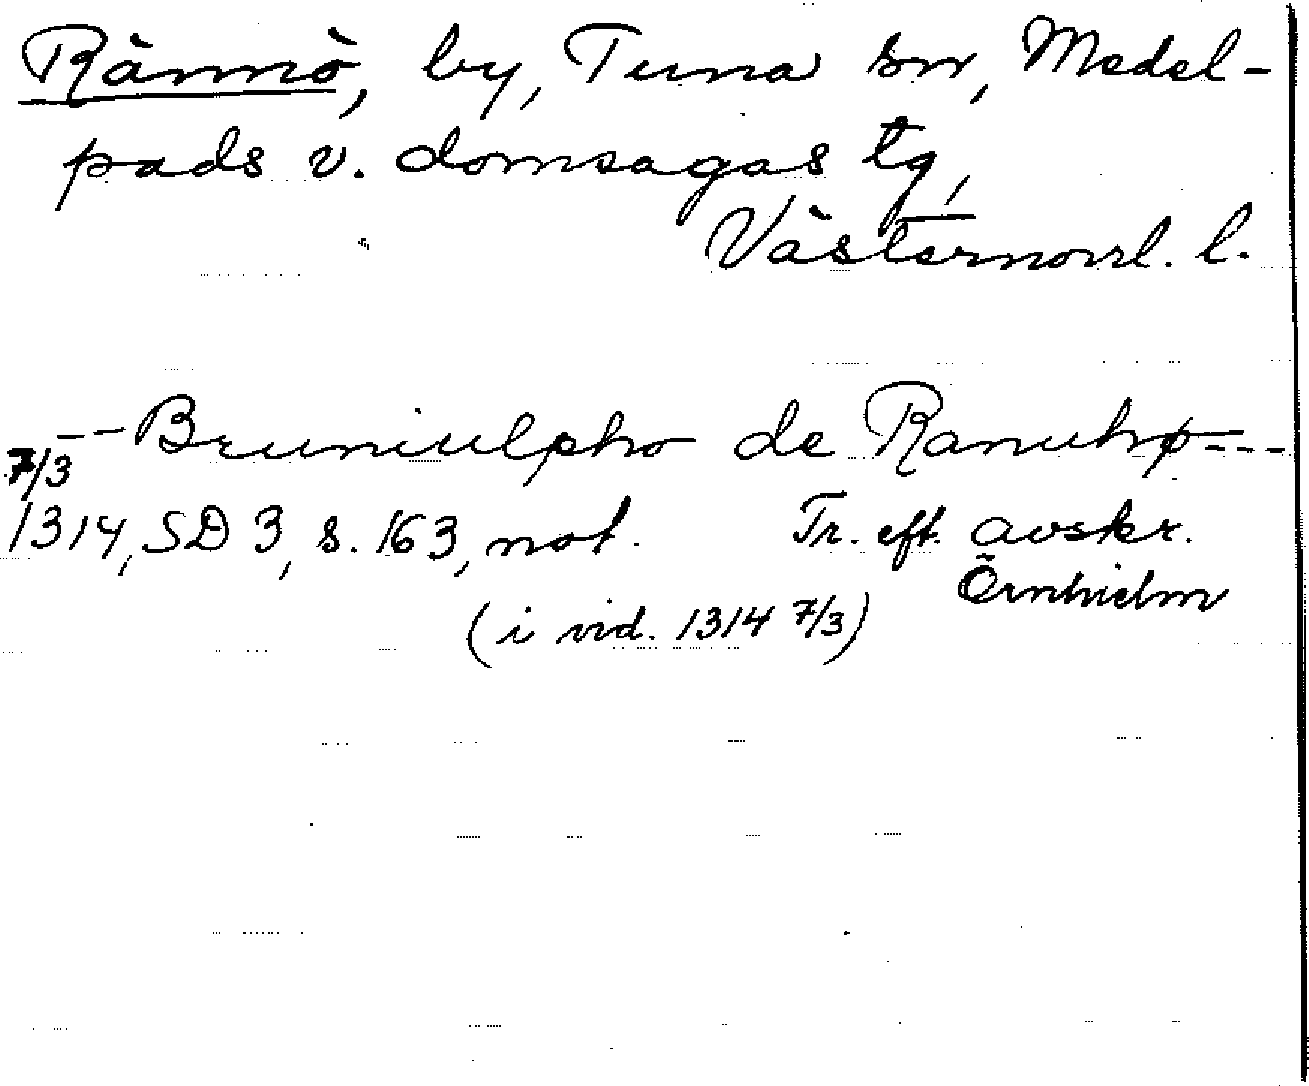 Rännö, by, Tuna sn, Medel-
pads v. domsagas tg,
Västernorrl. l.
--Bruniulpho de Ranuhø---
7/3
1314, SD 3, s. 163, not. Tr. eft. avskr.
Örnhielm
(i vid. 1314 7/3)